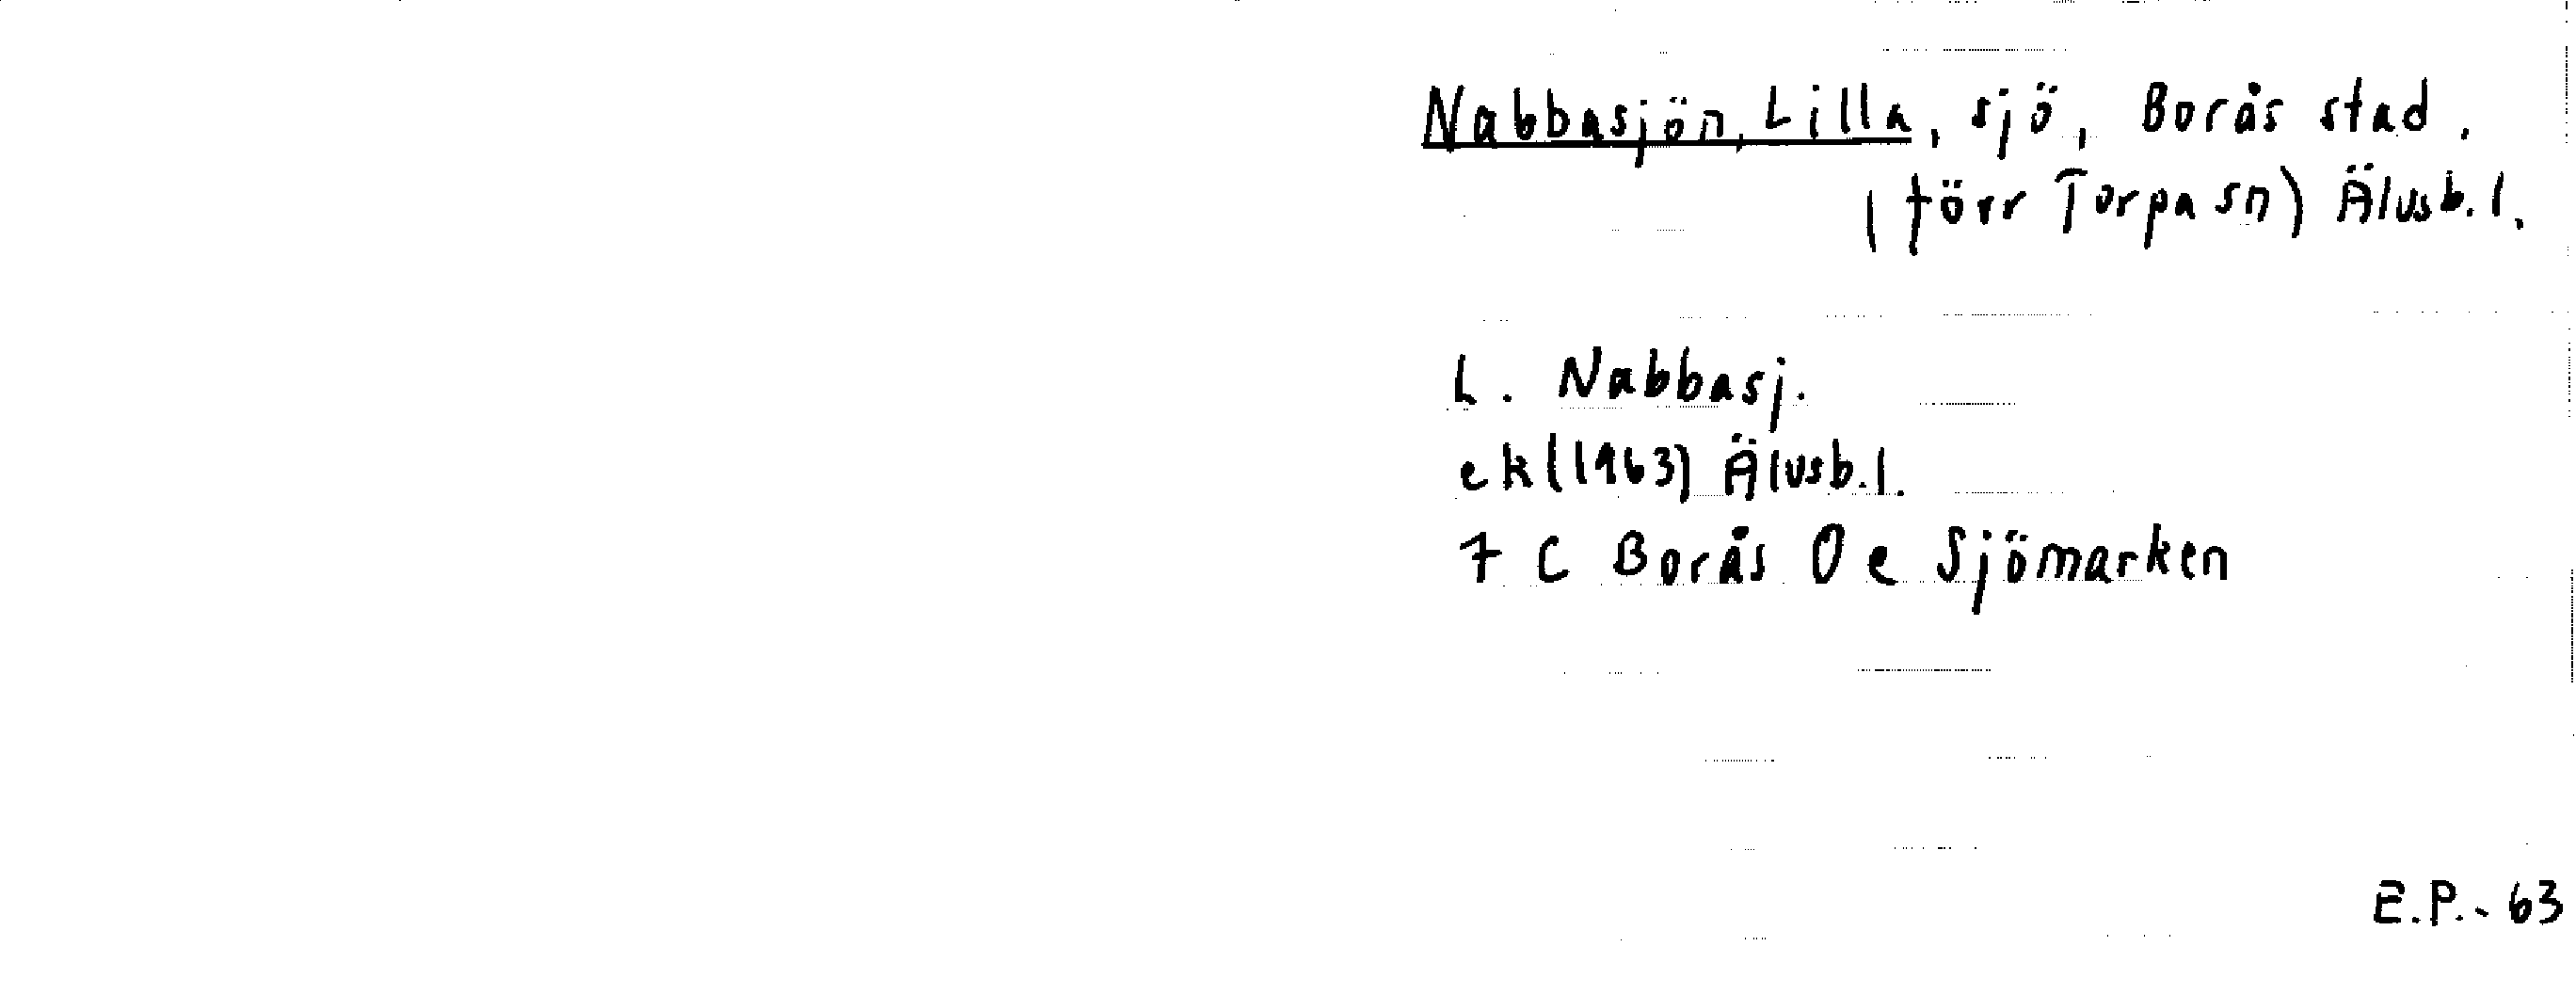 Nabbasjön, Lilla, sjö, Borås stad.
(förr Torpa sn) Älvsb. l.
L. Nabbasj.
ek (1963) Älvsb. l.
7 C Borås 0 e Sjömarken
E.P. - 63